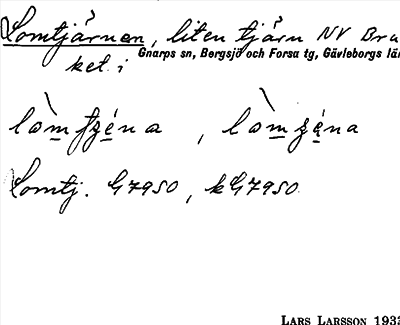 Lomtjärnen, liten tjärn NV Bru
ket i
Gnarps sn, Bergsjö och Forsa tg, Gävleborgs län
Lomtj. G7950, kG7950
LARS LARSSON 1933